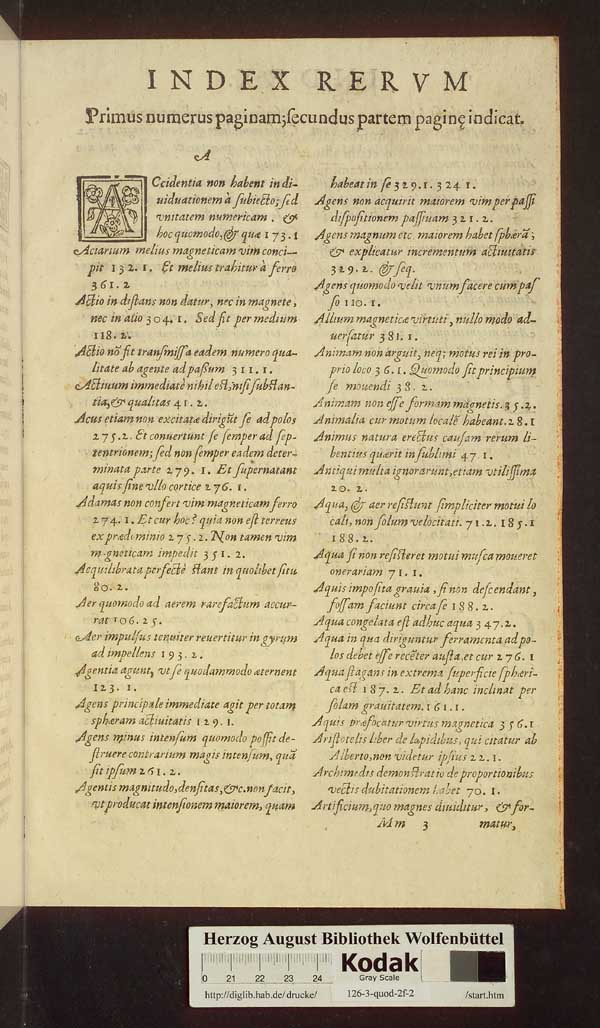 INDEX RERVM
Primus numerus paginam; secundus partem paginę indicat.
A
ACcidentia non habent indi-
uiduationem à subiecto; sed
vnitatem numericam. &
hoc quomodo, & quæ 173.1
Actarium melius magneticam vim conci-
pit 132.1. Et melius trahitur à ferro
361.2
Actio in distans non datur, nec in magnete,
nec in alio 304.1. Sed fit per medium
118.2.
Actio nō fit transmissa eadem numero qua-
litate ab agente ad passum 311.1.
Actiuum immediatè nihil est, nisi substan-
tia, & qualitas 41.2.
Acus etiam non excitatæ dirigūt se ad polos
275.2. Et conuertunt se semper ad sep-
tentrionem; sed non semper eadem deter-
minata parte 279.1. Et supernatant
aquis sine vllo cortice 276.1.
Adamas non confert vim magneticam ferro
274.1. Et cur hoc? quia non est terreus
ex prædominio 275.2. Non tamen vim
magneticam impedit 351.2.
Aequilibrata perfectè stant in quolibet situ
80.2.
Aer quomodo ad aerem rarefactum accur-
rat 106.25.
Aer impulsus tenuiter reuertitur in gyrum
ad impellens 193.2.
Agentia agunt, vt se quodammodo æternent
123.1.
Agens principale immediate agit per totam
sphæram actiuitatis 129.1.
Agens minus intensum quomodo possit de-
struere contrarium magis intensum, quā
sit ipsum 261.2.
Agentis magnitudo, densitas, &c. non facit,
vt producat intensionem maiorem, quam
habeat in se 329.1. 324 1.
Agens non acquirit maiorem vim per passi
dispositionem passiuam 321.2.
Agens magnum etc. maiorem habet sphærā;
& explicatur incrementum actiuitatis
329.2. & seq.
Agens quomodo velit vnum facere cum pas
so 110.1.
Allium magneticæ virtuti, nullo modo ad-
uersatur 381.1.
Animam non arguit, neq; motus rei in pro-
prio loco 36.1. Quomodo sit principium
se mouendi 38.2.
Animam non esse formam magnetis. 35.2.
Animalia cur motum localē habeant. 28.1
Animus natura erectus causam rerum li-
bentius quærit in sublimi 47.1.
Antiqui multa ignorarunt, etiam vtilissima
20.2.
Aqua, & aer resistunt simpliciter motui lo
cali, non solum velocitati. 71.2. 185.1
188.2.
Aqua si non resisteret motui musca moueret
onerariam 71.1.
Aquis imposita grauia, si non descendant,
fossam faciunt circa se 188.2.
Aqua congelata est adhuc aqua 347.2.
Aqua in qua diriguntur ferramenta ad po-
los debet esse recēter austa, et cur 276.1
Aqua stagans in extrema superficie sphæri-
ca est 187.2. Et ad hanc inclinat per
solam grauitatem. 161.1.
Aquis præfocatur virtus magnetica 356.1
Aristotelis liber de lapidibus, qui citatur ab
Alberto, non videtur ipsius 22.1.
Archimedis demonstratio de proportionibus
vectis dubitationem habet 70.1.
Artificium, quo magnes diuiditur, & for-
Mm 3 matur,
Herzog August Bibliothek Wolfenbüttel
0 21 22 23 24
Kodak
Gray Scale
http://diglib.hab.de/drucke/ 126-3-quod-2f-2 /start.htm